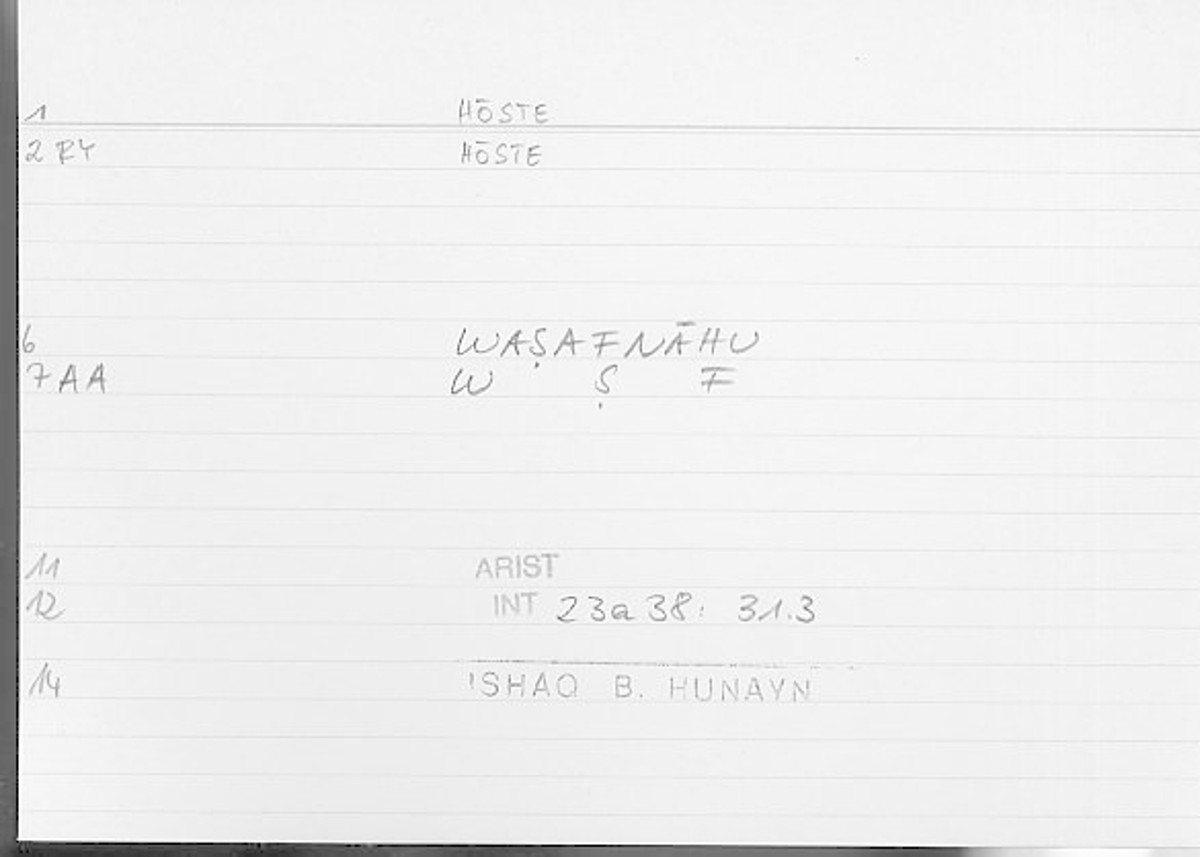 1 HŌSTE
2 RY HŌSTE
6 WAṢAFNĀHU
7 AA W Ṣ F
11 ARIST
12 INT 23a38: 31.3
14 ISHAQ B. HUNAYN